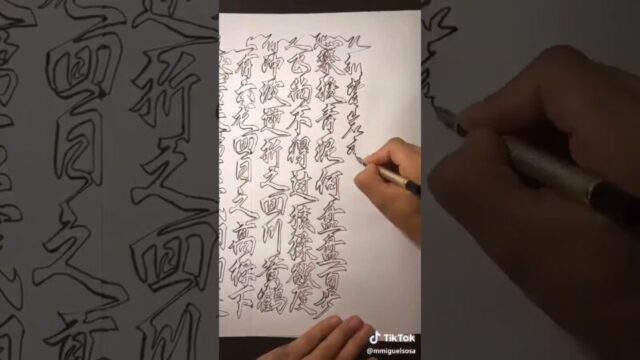 上有六龙回日之高标下
有冲波逆折之回川黄鹤
之飞尚不得过猿猱欲度
愁攀援青泥何盘盘百步
九折萦岩
TikTok
@mmiguelsosa